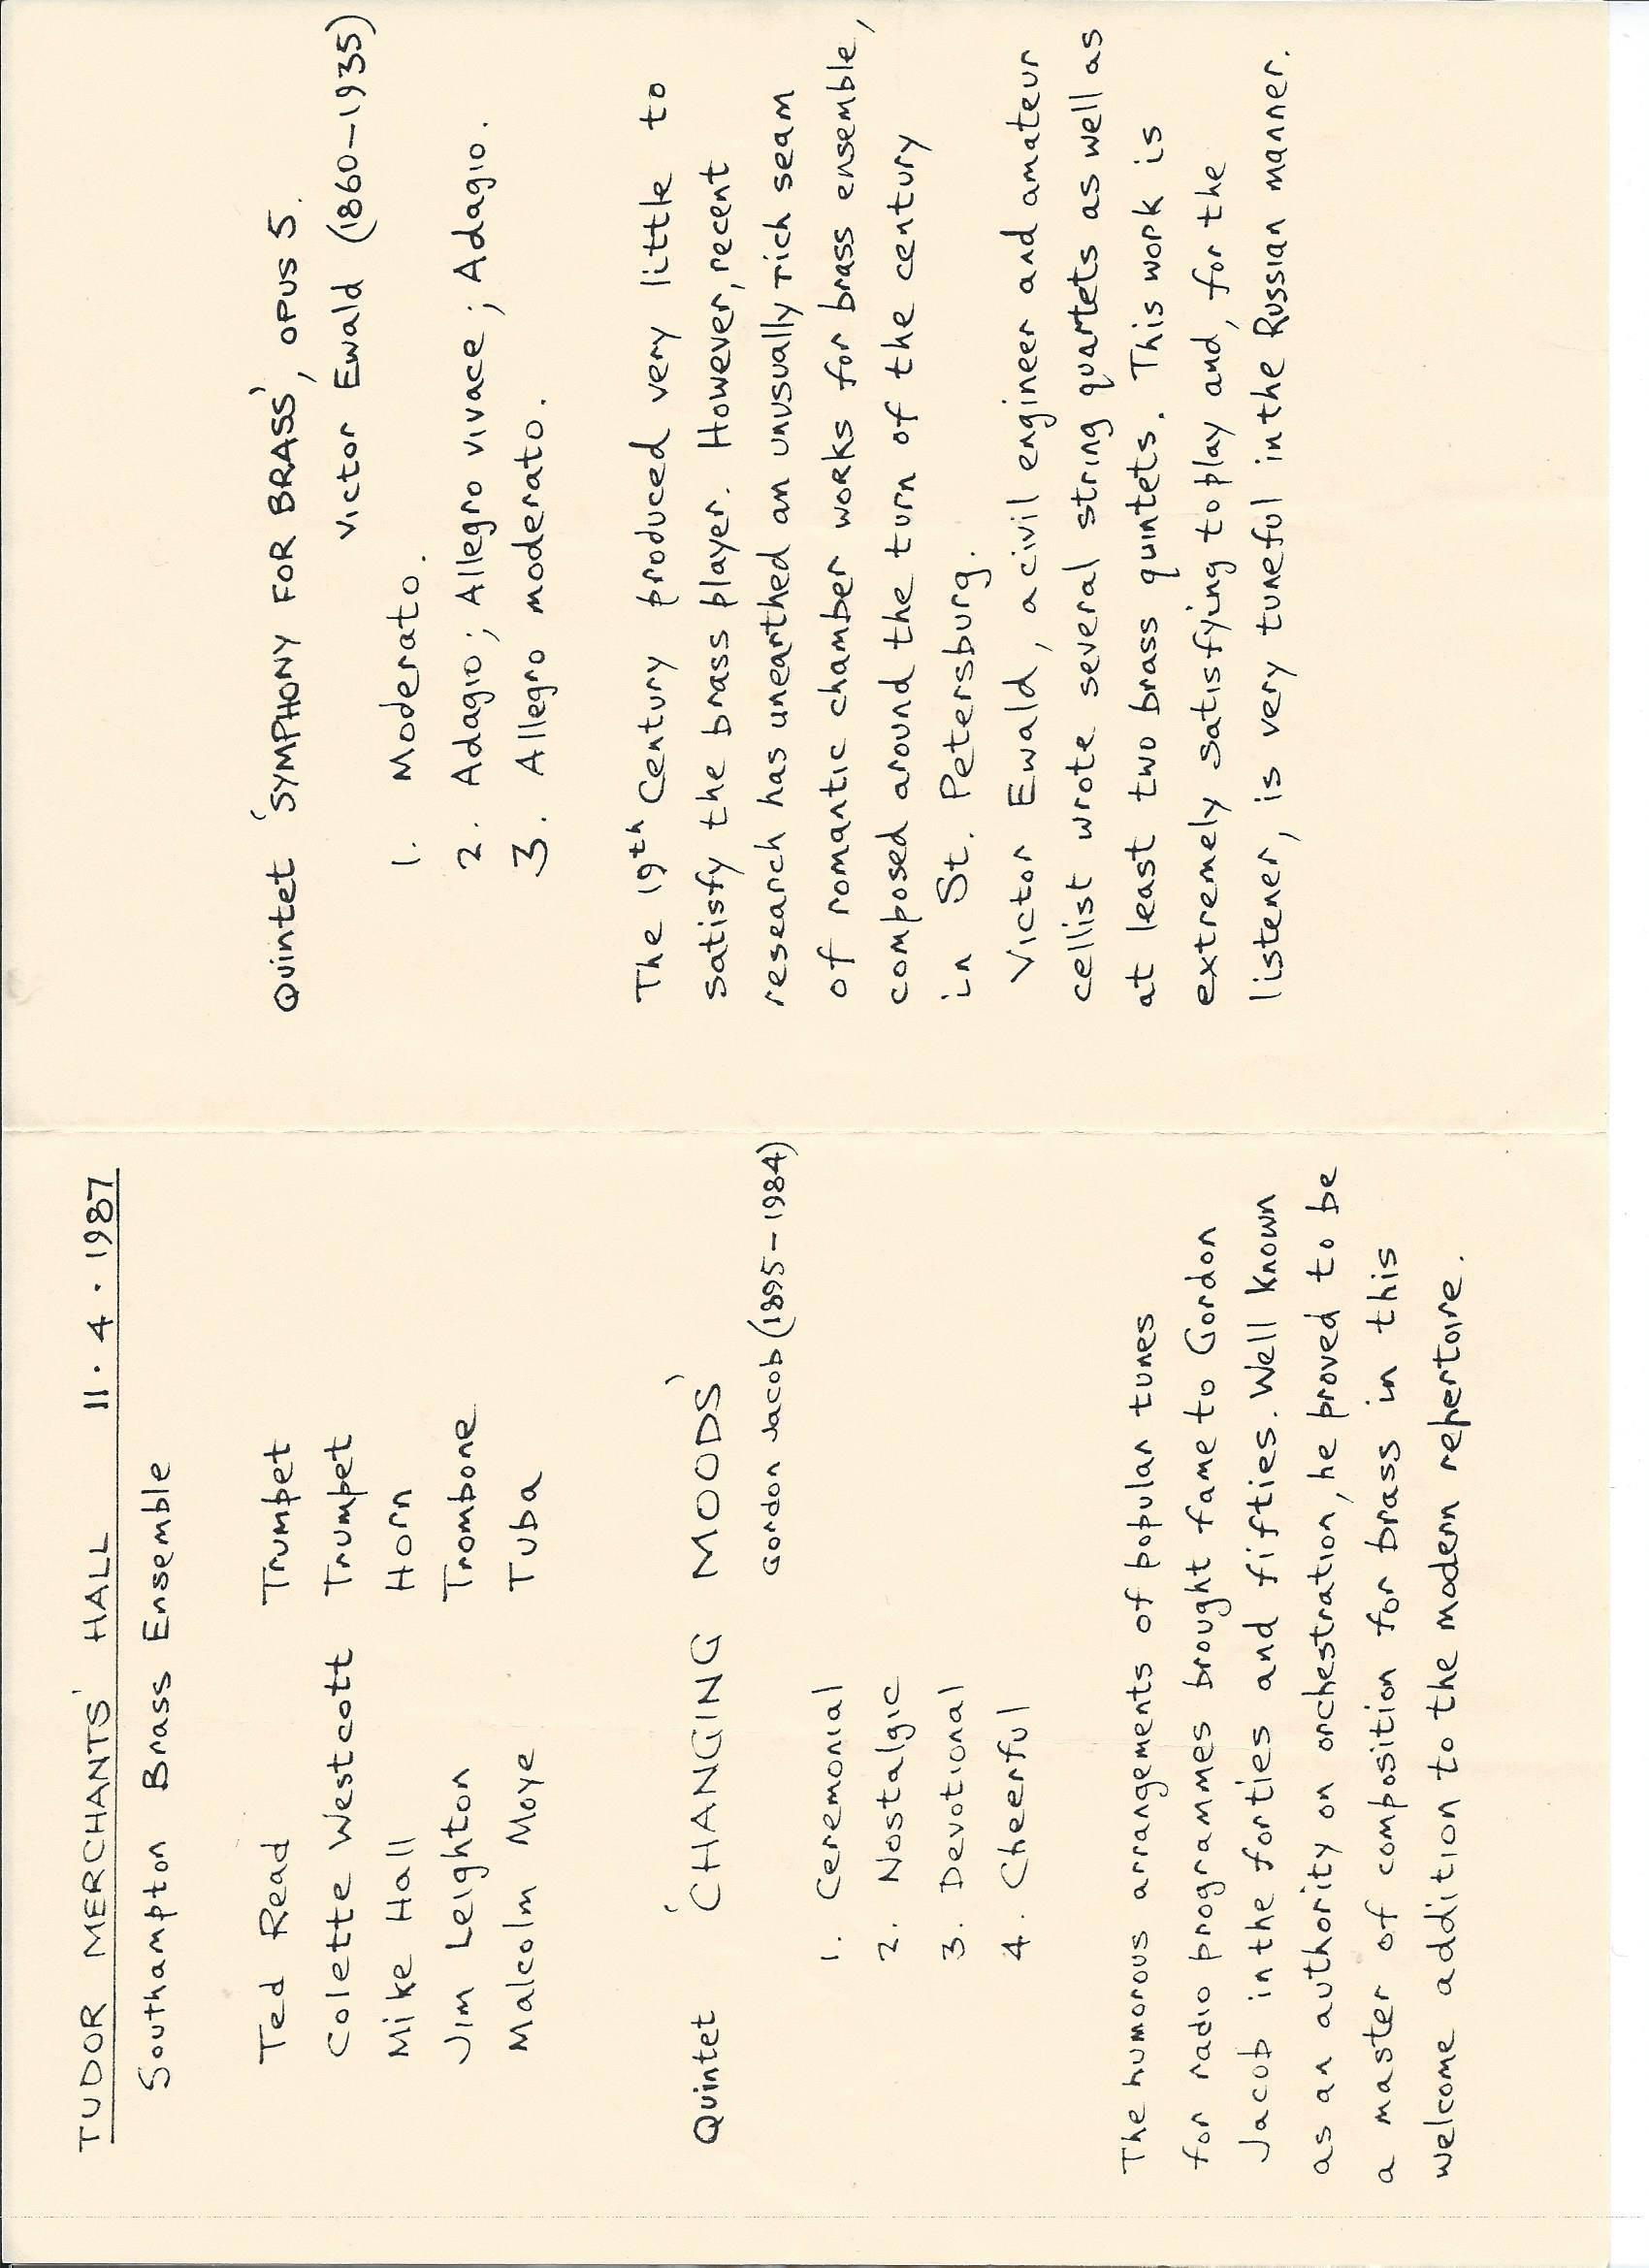 TUDOR MERCHANTS' HALL 11.4.1987
Southampton Brass Ensemble
Ted Read Trumpet
Colette Westcott Trumpet
Mike Hall Horn
Jim Leighton Trombone
Malcolm Moye Tuba
Quintet 'CHANGING MOODS'
Gordon Jacob (1895-1984)
1. Ceremonial
2. Nostalgic
3. Devotional
4. Cheerful
The humorous arrangements of popular tunes
for radio programmes brought fame to Gordon
Jacob in the forties and fifties. Well known
as an authority on orchestration, he proved to be
a master of composition for brass in this
welcome addition to the modern repertoire.
Quintet 'SYMPHONY FOR BRASS', OPUS 5.
Victor Ewald (1860-1935)
1. Moderato.
2. Adagio; Allegro vivace; Adagio.
3. Allegro moderato.
The 19th Century produced very little to
satisfy the brass player. However, recent
research has unearthed an unusually rich seam
of romantic chamber works for brass ensemble,
composed around the turn of the century
in St. Petersburg.
Victor Ewald, a civil engineer and amateur
cellist wrote several string quartets as well as
at least two brass quintets. This work is
extremely satisfying to play and, for the
listener, is very tuneful in the Russian manner.